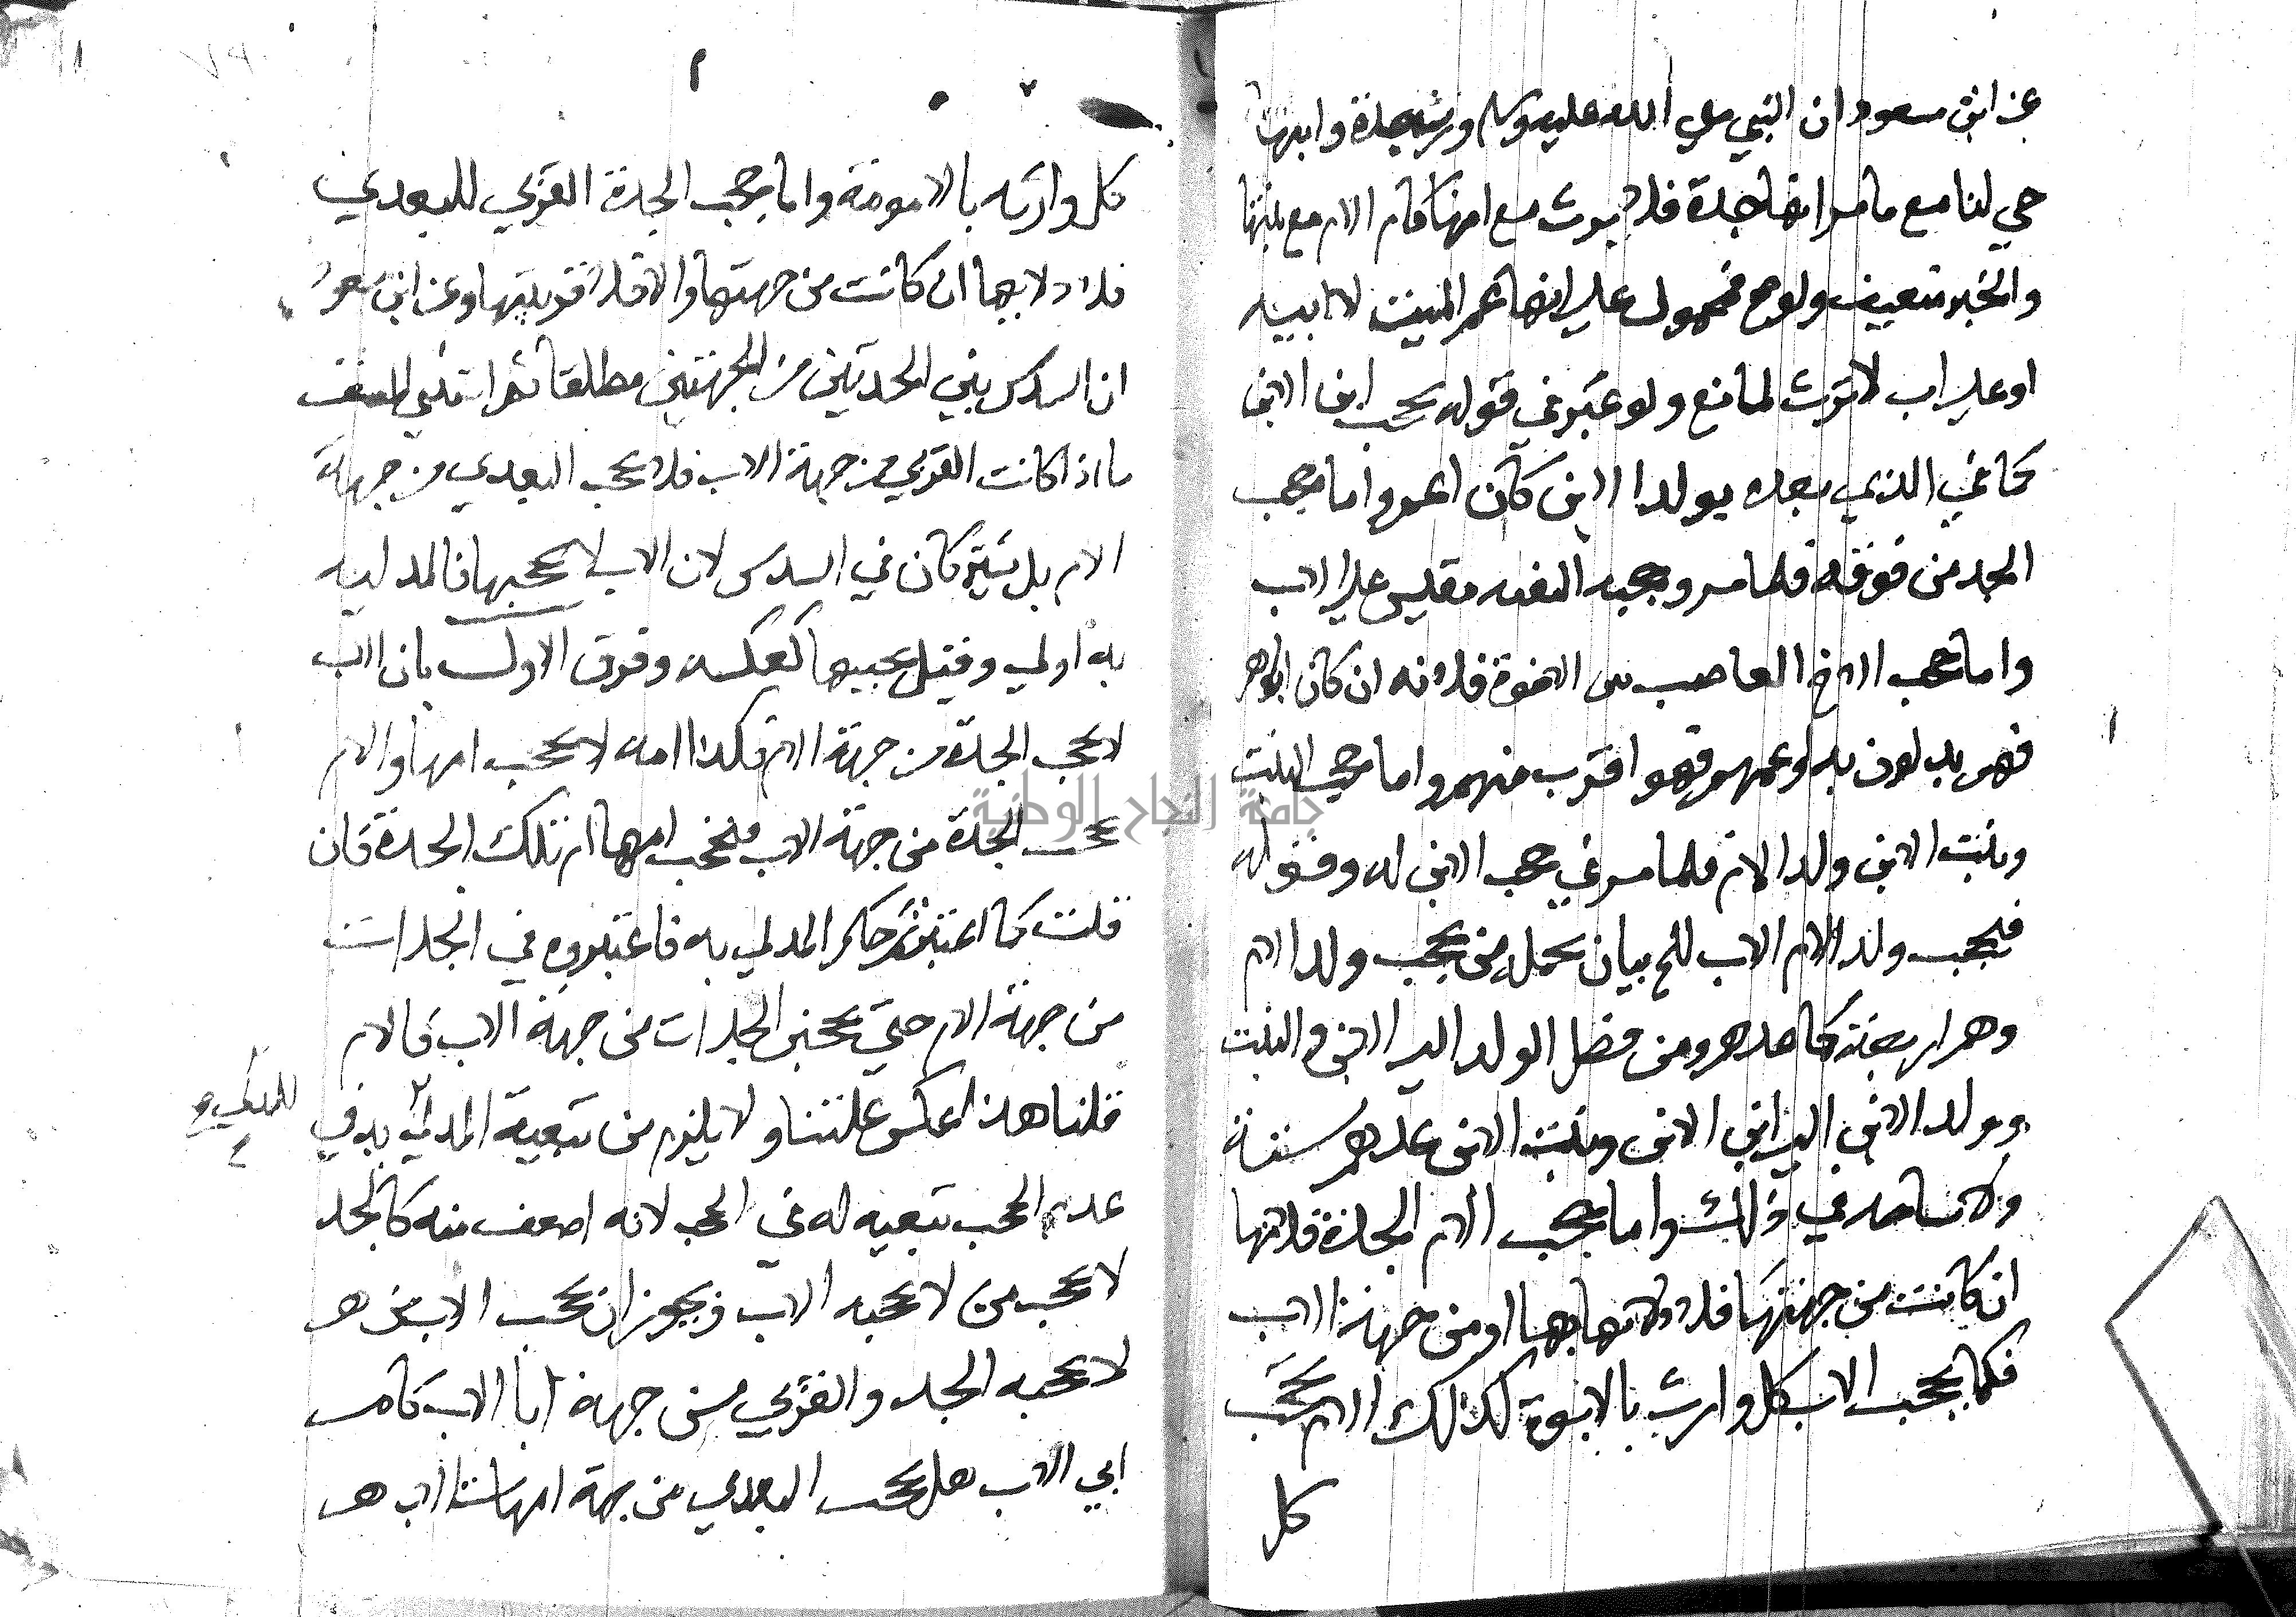 عن ابن مسعود ان النبي صلي الله عليه وسلم ورث جدة وابنها
حي لنا مع ما مر انها جدة فلا يرث مع امها كام الام مع بنتها
والخبر ضعيف ولو صح فمحمول علي انها عم الميت لا ابيه
او علي اب لا يرث لمانع ولو عبر في قوله يحجب ابن الابن
كما في الذي بعده بولد الابن كان اعم واما حجب
الجد من فوقه فلما مر وحجبه لنفسه مقيس علي الاب
واما حجب الاخ العاصب من الاخوة فلانه ان كان ابوهم
فهم يدلون به او عمهم فهو اقرب منهم واما حجب البنت
وبنت الابن ولد الام فلما مر في حجب الابن له وقوله
فيحجب ولد الام الاب للخ بيان لجملة من يحجب ولد الام
وهم اربعة كما عدهم ومن فصل الولد الي الابن والبنت
وولد الابن الي ابن الابن وبنت الابن عدهم ستة
ولا مشاحة في ذالك واما حجب الام الجدة فلانها
ان كانت من جهتها فلادلائها بها او من جهة الاب
فكما يحجب الاب كل وارث بالابوة كذلك الام تحجب
كل
كل وارثه بالامومة واما حجب الجدة القربي للبعدي
فلادلائها بها ان كانت من جهتها والا فلقوتها وعن ابن مسعود
ان السدس بين الجدتين من الجهتين مطلقا ثم استثني المصنف
ما اذا كانت القربي من جهة الاب فلا تحجب البعدي من جهة
الام بل يشتركان في السدس لان الاب لا يحجبها فالمدلية
به اولي وقيل تحجبها كعكسه وفرق الاول بان الاب
لا يحجب الجدة من جهة الام فكذا امه لا تحجب امها والام
تحجب الجدة من جهة الاب فتحجب امها ام تلك الجدة فان
قلت كما اعتبرتم حكم المدلي به فاعتبروه في الجدات
من جهة الام حتي يحجبن الجدات من جهة الاب كالام
قلنا هذا عكس علتنا ولا يلزم من تبعية المدلي به في
عدم الحجب تبعيه له في الحجب لانه اضعف منه كالجد
لا يحجب من لا يحجبه الاب ويجوز ان يحجب الاب من هو
لا يحجبه الجد والقربي من جهة ابا الاب كام
ابي الاب هل تحجب البعدي من جهة امهات الاب هو
جامعة النجاح الوطنية